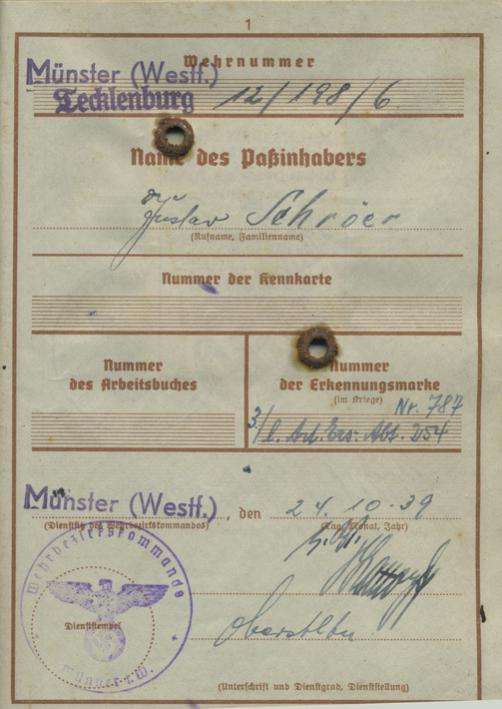 1
Wehrnummer
Münster (Westf.)
Tecklenburg 12/198/6
Name des Paßinhabers
Gustav Schröer
(Rufname, Familienname)
Nummer der Kennkarte
Nummer
des Arbeitsbuches
Nummer
der Erkennungsmarke
(im Kriege)
Nr. 787
3/l. Art. Ers. Abt. 254
Münster (Westf.), den 24.10.39
(Dienstsitz des Wehrbezirkskommandos) (Tag, Monat, Jahr)
Wehrbezirkskommando
Dienststempel
Münster i.W.
Oberstltn
(Unterschrift und Dienstgrad, Dienststellung)